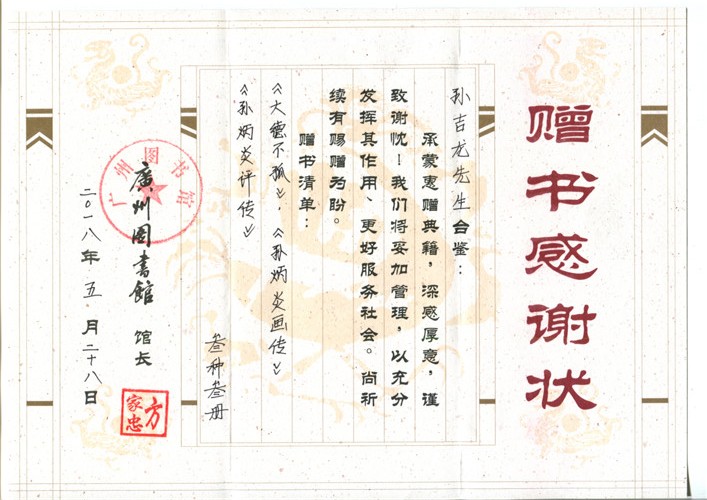 赠书感谢状
孙吉龙先生台鉴：
承蒙惠赠典籍，深感厚意，谨
致谢忱！我们将妥加管理，以充分
发挥其作用、更好服务社会。尚祈
续有赐赠为盼。
赠书清单：
《大德不孤》.《孙炳炎画传》
《孙炳炎评传》
叁种叁册
廣州图書館 馆长
方家忠
二〇一八年五月二十八日
广州图书馆